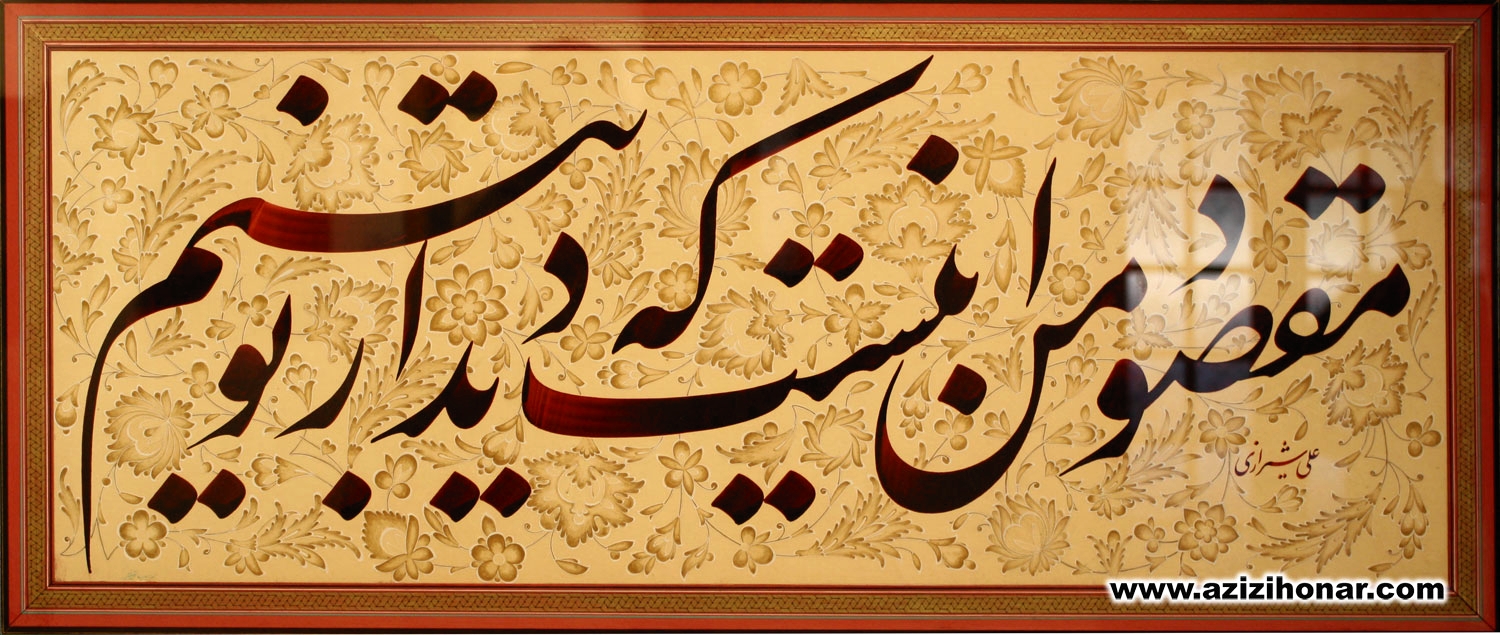 مقصود من اینست که دیدار تو بینم
علی شیرازی
www.azizihonar.com